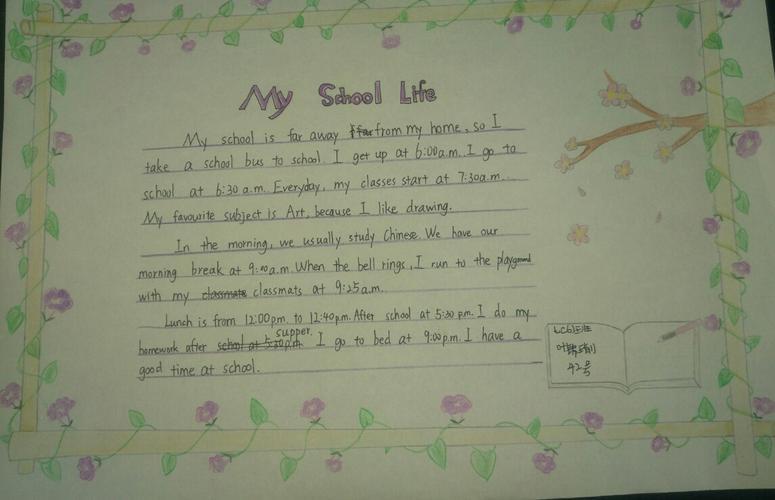 My School Life
My school is far away from my home, so I
take a school bus to school. I get up at 6:00a.m. I go to
school at 6:30 a.m. Everyday, my classes start at 7:30a.m.
My favourite subject is Art, because I like drawing.
In the morning, we usually study Chinese. We have our
morning break at 9:20a.m. When the bell rings, I run to the playground
with my classmats at 9:25a.m.
Lunch is from 12:00pm. to 12:40p.m. After school at 5:30 p.m. I do my
supper.
homework after I go to bed at 9:00p.m. I have a
good time at school.
42号